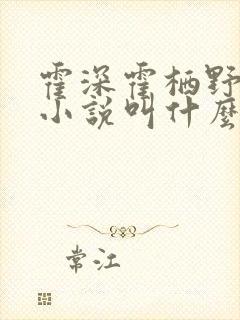 霍深霍栖野
小说叫什麽
常江